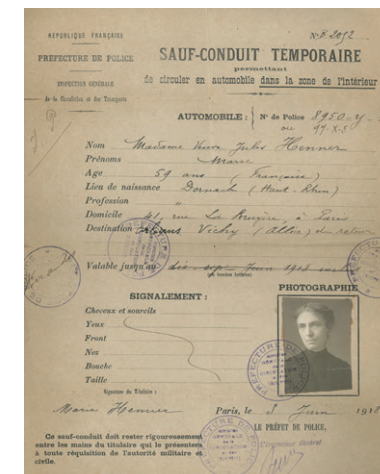 RÉPUBLIQUE FRANÇAISE
PREFECTURE DE POLICE
INSPECTION GÉNÉRALE
de la Circulation et des Transports
N° 8.2052
SAUF-CONDUIT TEMPORAIRE
permettant
de circuler en automobile dans la zone de l'Intérieur
AUTOMOBILE : N° de Police 8950-y
ou 97-X-5
Nom Madame Veuve Jules Henner
Prénoms Marie
Age 59 ans (Française)
Lieu de naissance Dornach (Haut-Rhin)
Profession "
Domicile 41, rue La Bruyère, à Paris
Destination Orléans Vichy (Allier) et retour
Valable jusqu'au dix-sept Juin 1918
(en toutes lettres)
SIGNALEMENT :
Cheveux et sourcils
Yeux
Front
Nez
Bouche
Taille
Signature du Titulaire :
Marie Henner
PHOTOGRAPHIE
PREFECTURE DE POLICE
Paris, le 8 Juin 1918
LE PRÉFET DE POLICE,
L'Inspecteur Général
Ce sauf-conduit doit rester rigoureusement
entre les mains du titulaire qui le présentera
à toute réquisition de l'autorité militaire et
civile.